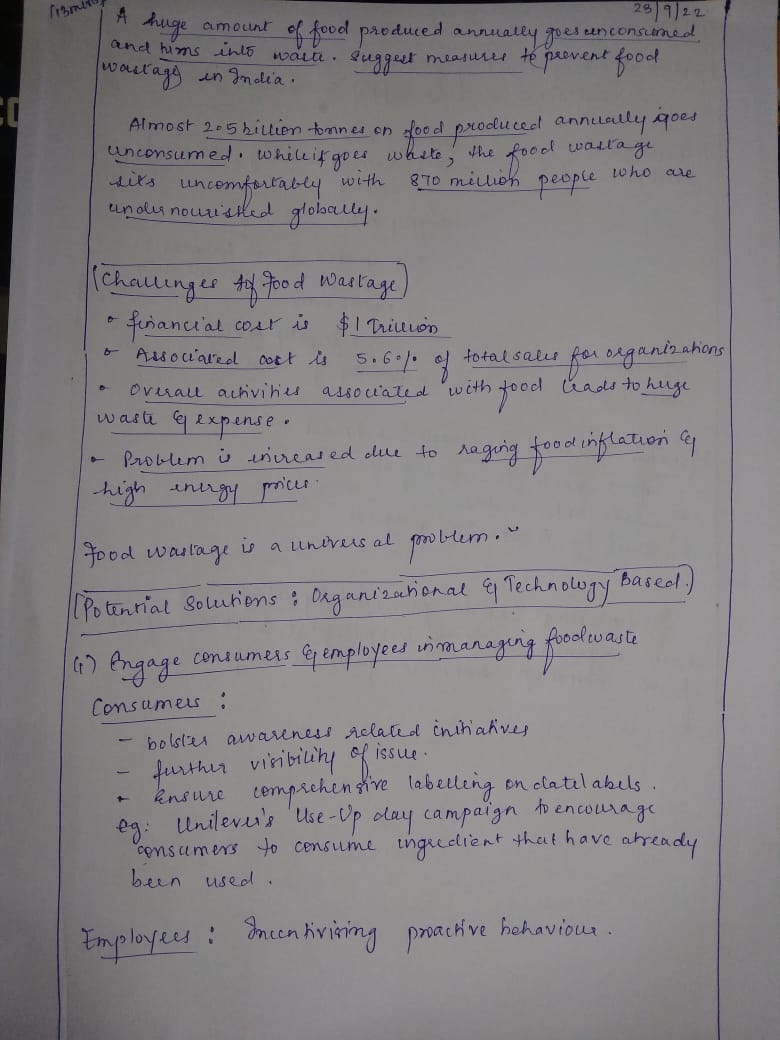 (13mins)
23/9/22
A huge amount of food produced annually goes unconsumed
and turns into waste. Suggest measures to prevent food
wastage in India.
Almost 2.5 billion tonnes on food produced annually goes
unconsumed. While it goes waste, the food wastage
sits uncomfortably with 870 million people who are
undernourished globally.
Challenges of Food Wastage
• financial cost is $1 Trillion
• Associated cost is 5.6% of total sales for organizations
• Overall activities associated with food leads to huge
waste & expense.
• Problem is increased due to raging food inflation &
high energy prices.
Food wastage is a universal problem.
(Potential Solutions: Organizational & Technology Based.)
(1) Engage consumers & employees in managing food waste
Consumers:
- bolster awareness related initiatives
- further visibility of issue.
- Ensure comprehensive labelling on date labels.
eg: Unilever's Use-Up day campaign to encourage
consumers to consume ingredient that have already
been used.
Employees: Incentivising proactive behaviour.